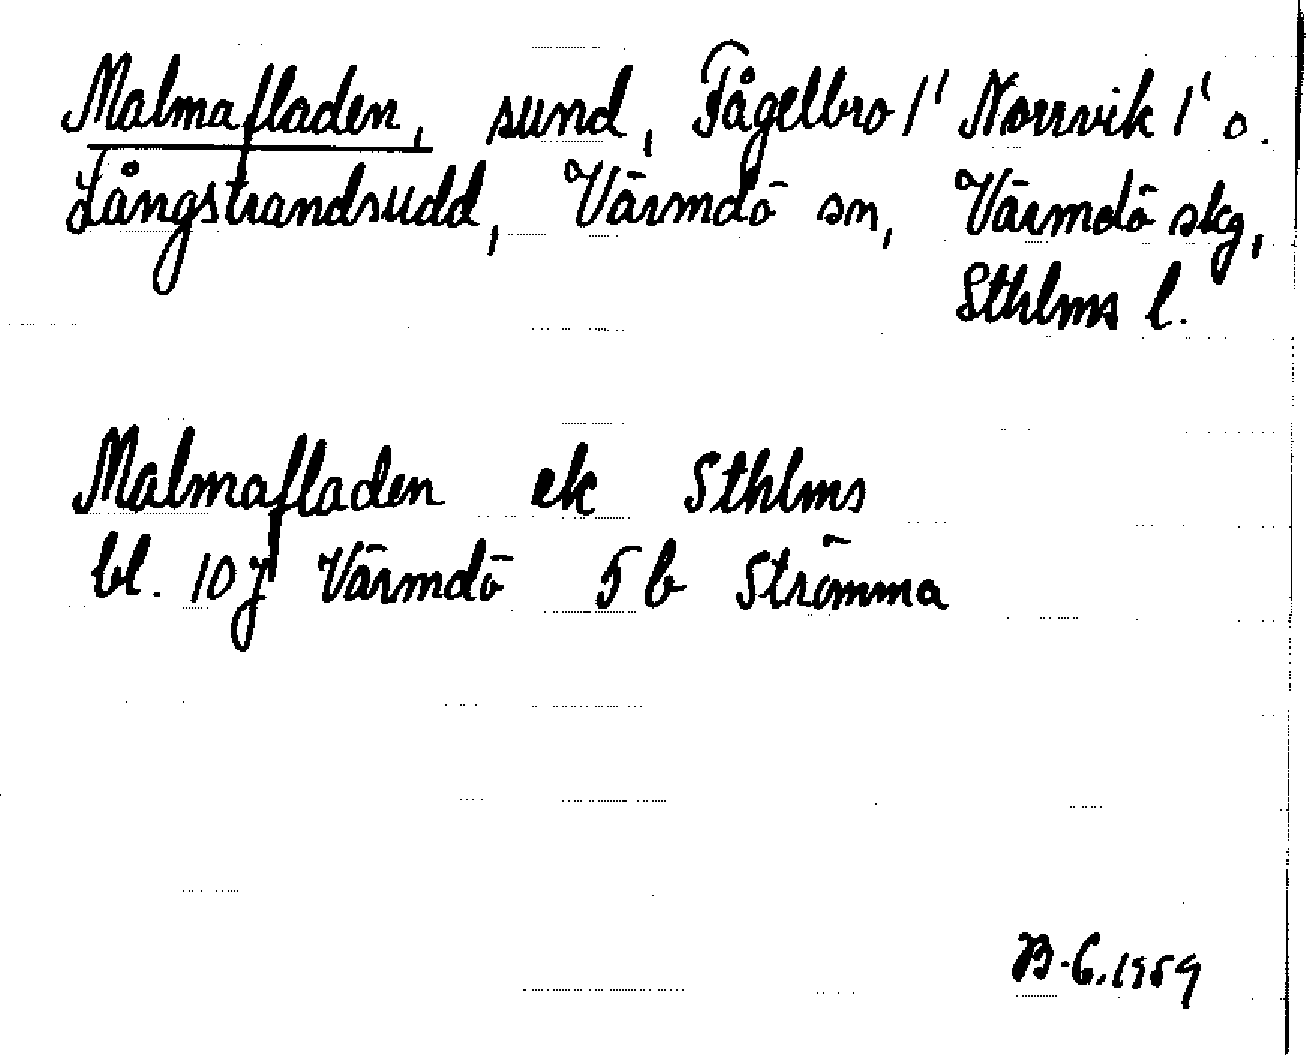 Malmafladen, sund, Fågelbro 1' Norrvik 1' o.
Långstrandsudd, Värmdö sn, Värmdö skg,
Sthlms l.
Malmafladen ek Sthlms
bl. 10 J Värmdö 5 b Strömma
B-G. 1959